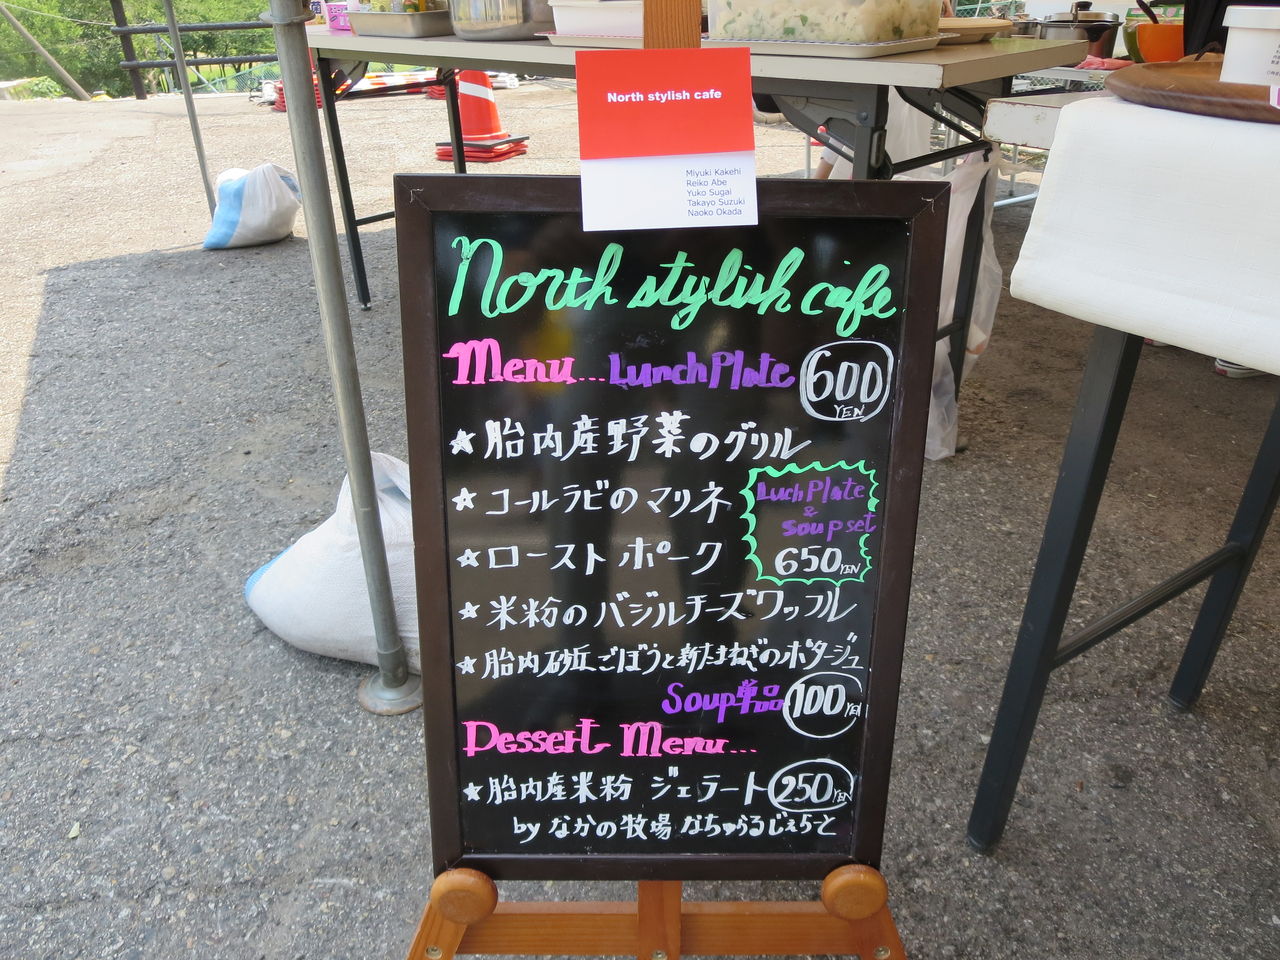 North stylish cafe
Miyuki Kakehi
Reiko Abe
Yuko Sugai
Takayo Suzuki
Naoko Okada
North stylish cafe
Menu... Lunch Plate 600 YEN
★ 胎内産野菜のグリル
★ コールラビのマリネ
Luch Plate
& Soup set
650 YEN
★ ローストポーク
★ 米粉のバジルチーズワッフル
★ 胎内砂丘ごぼうと新たまねぎのポタージュ
Soup単品 100 YEN
Dessert Menu...
★ 胎内産米粉 ジェラート 250 YEN
by なかの牧場 なちゅらるじぇらーと